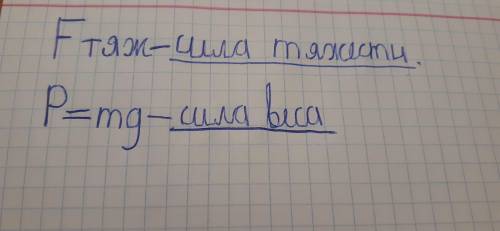 Fтяж-сила тяжести.
P=mg-сила веса